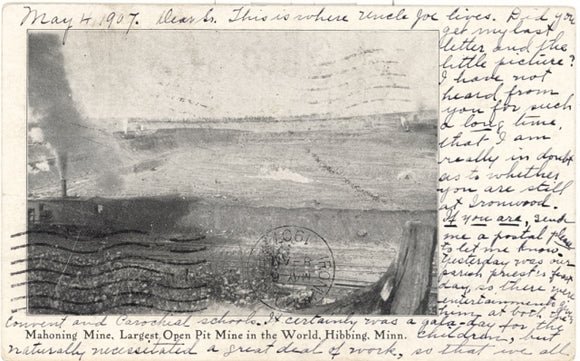 May 4, 1907. Dear Sr. This is where uncle Joe lives. Did you
get my last
letter and the
little picture?
I have not
heard from
you for such
a long time,
that I am
really in doubt
as to whether
you are still
at Ironwood.
If you are, send
me a postal please
to let me know.
Yesterday was our
parish priest's feast
day, so there were
entertainments given
at both of
Convent and Parochial schools. It certainly was a gala-day for the
children, but
Mahoning Mine, Largest Open Pit Mine in the World, Hibbing, Minn.
naturally necessitated a great deal of work, so that we all